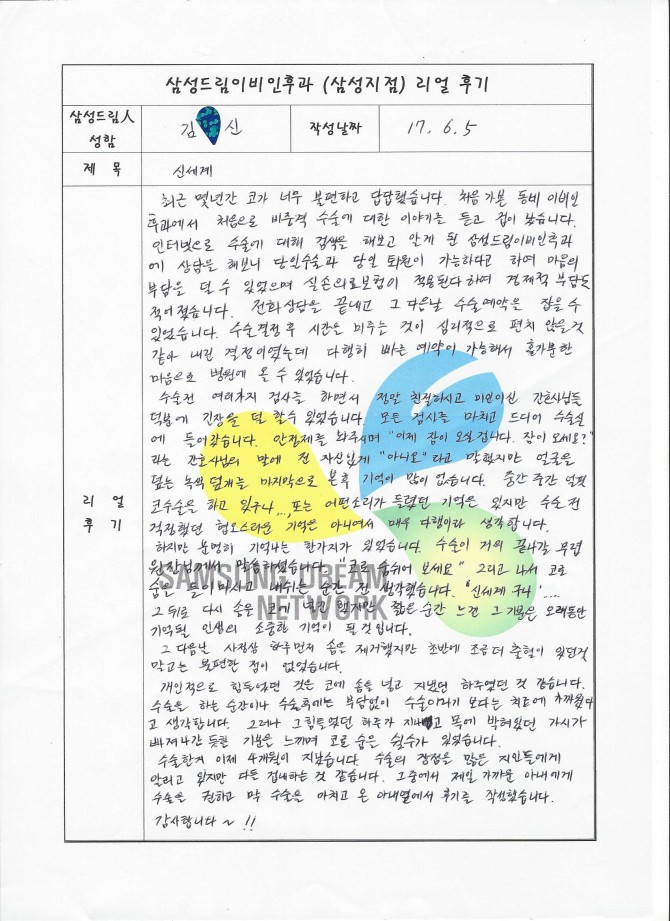 삼성드림이비인후과 (삼성지점) 리얼 후기
삼성드림人
성함
김 신
작성날짜
17. 6. 5
제 목
신세계
리 얼
후 기
최근 몇년간 코가 너무 불편하고 답답했습니다. 처음 가본 동네 이비인
후과에서 처음으로 비중격 수술에 대한 이야기를 듣고 겁이 났습니다.
인터넷으로 수술에 대해 검색을 해보고 알게 된 삼성드림이비인후과
에 상담을 해보니 당일수술과 당일 퇴원이 가능하다고 하여 마음의
부담을 덜 수 있었으며 실손의료보험이 적용된다하여 경제적 부담도
적어졌습니다. 전화상담을 끝내고 그 다음날 수술예약을 잡을 수
있었습니다. 수술결정 후 시간을 미루는 것이 심리적으로 편치 않을것
같아 내린 결정이였는데 다행히 빠른 예약이 가능해서 홀가분한
마음으로 병원에 올 수 있었습니다.
수술전 여러가지 검사를 하면서 정말 친절하시고 미인이신 간호사님들
덕분에 긴장을 덜 할수 있었습니다. 모든 검사를 마치고 드디어 수술실
에 들어갔습니다. 안정제를 놔주시며 "이제 잠이 오실겁니다. 잠이 오세요?"
라는 간호사님의 말에 전 자신있게 "아니오"라고 말했지만 얼굴을
덮는 녹색 덮개를 마지막으로 본후 기억이 많이 없습니다. 중간 중간 얼핏
코수술을 하고 있구나..., 또는 어떤소리가 들렸던 기억은 있지만 수술 전
걱정했던 혐오스러운 기억은 아니여서 매우 다행이라 생각합니다.
하지만 분명히 기억나는 한가지가 있었습니다. 수술이 거의 끝나갈 무렵
원장님께서 말씀하셨습니다. "코로 숨쉬어 보세요" 그리고 나서 코로
숨을 들이마시고 내쉬는 순간 전 생각했습니다. '신세계 구나' ....
그 뒤로 다시 솜을 코에 넣긴 했지만 짧은 순간 느낀 그 기분은 오래동안
기억될 인생의 소중한 기억이 될 것입니다.
그 다음날 사정상 하루먼저 솜은 제거했지만 초반에 조금 더 출혈이 있던것
말고는 불편한 점이 없었습니다.
개인적으로 힘들었던 것은 코에 솜을 넣고 지냈던 하루였던 것 같습니다.
수술을 하는 순간이나 수술후에는 부담없이 수술이라기 보다는 치료에 가까웠다
고 생각합니다. 그러나 그 힘들었던 하루가 지나고 목에 박혀있던 가시가
빠져나간 듯한 기분을 느끼며 코로 숨을 쉴수가 있었습니다.
수술한지 이제 4개월이 지났습니다. 수술의 장점을 많은 지인들에게
알리고 있지만 다들 겁내하는 것 같습니다. 그중에서 제일 가까운 아내에게
수술을 권하고 막 수술을 마치고 온 아내옆에서 후기를 작성했습니다.
감사합니다 ~ !!
SAMSUNG DREAM
NETWORK